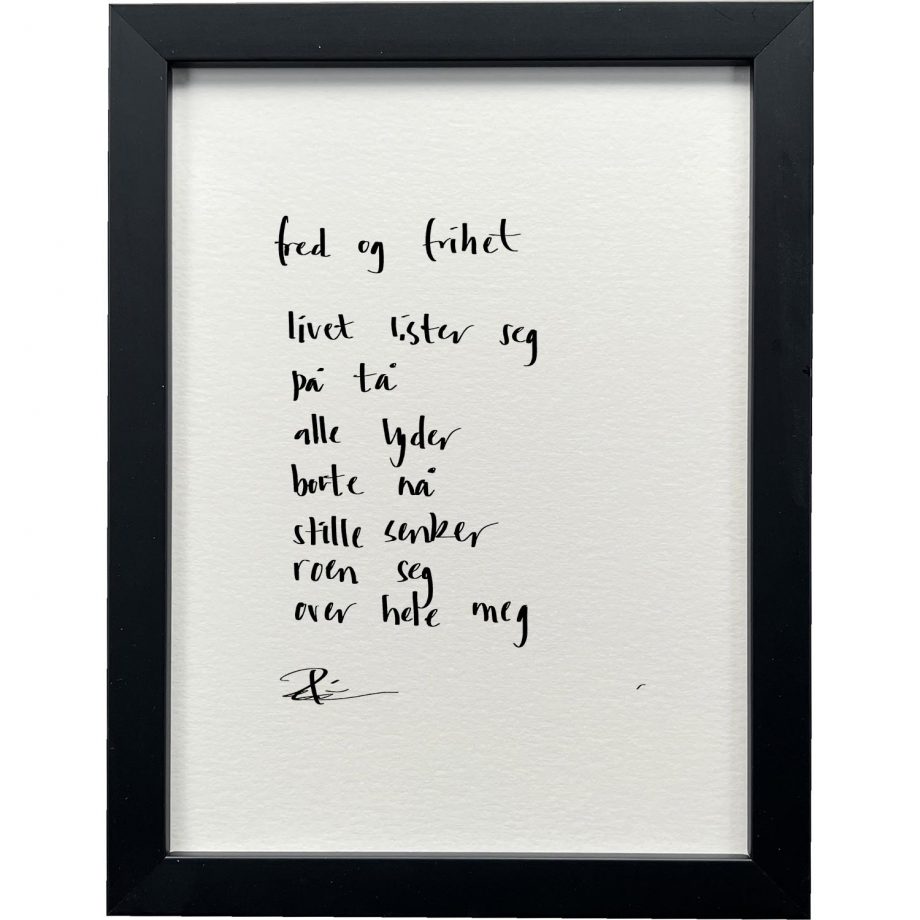 fred og frihet
livet lister seg
på tå
alle lyder
borte nå
stille senker
roen seg
over hele meg